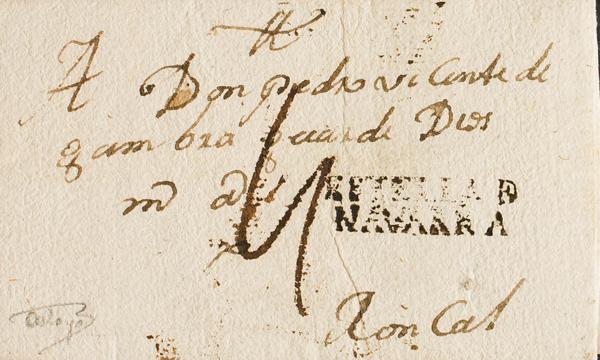 A Don pedro vicente de
gambra guarde Dios
m^s a^s
ESTELLA D
NAVARRA
Roncal